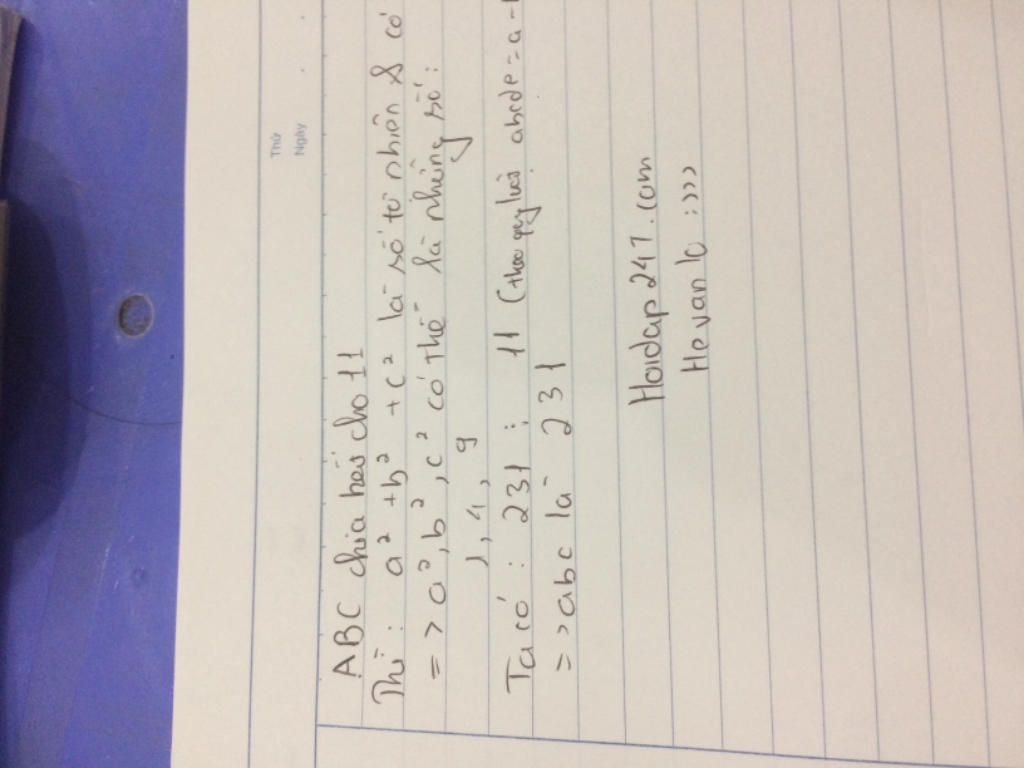 Thứ
Ngày
ABC chia hết cho 11
Thì : a² + b² + c² là số tự nhiên & có
=> a², b², c² có thể là những số :
1, 4, 9
Ta có : 231 : 11 (theo quy luật abcde = a -
=> abc là 231
Hoidap247.com
Hevanlc :)))